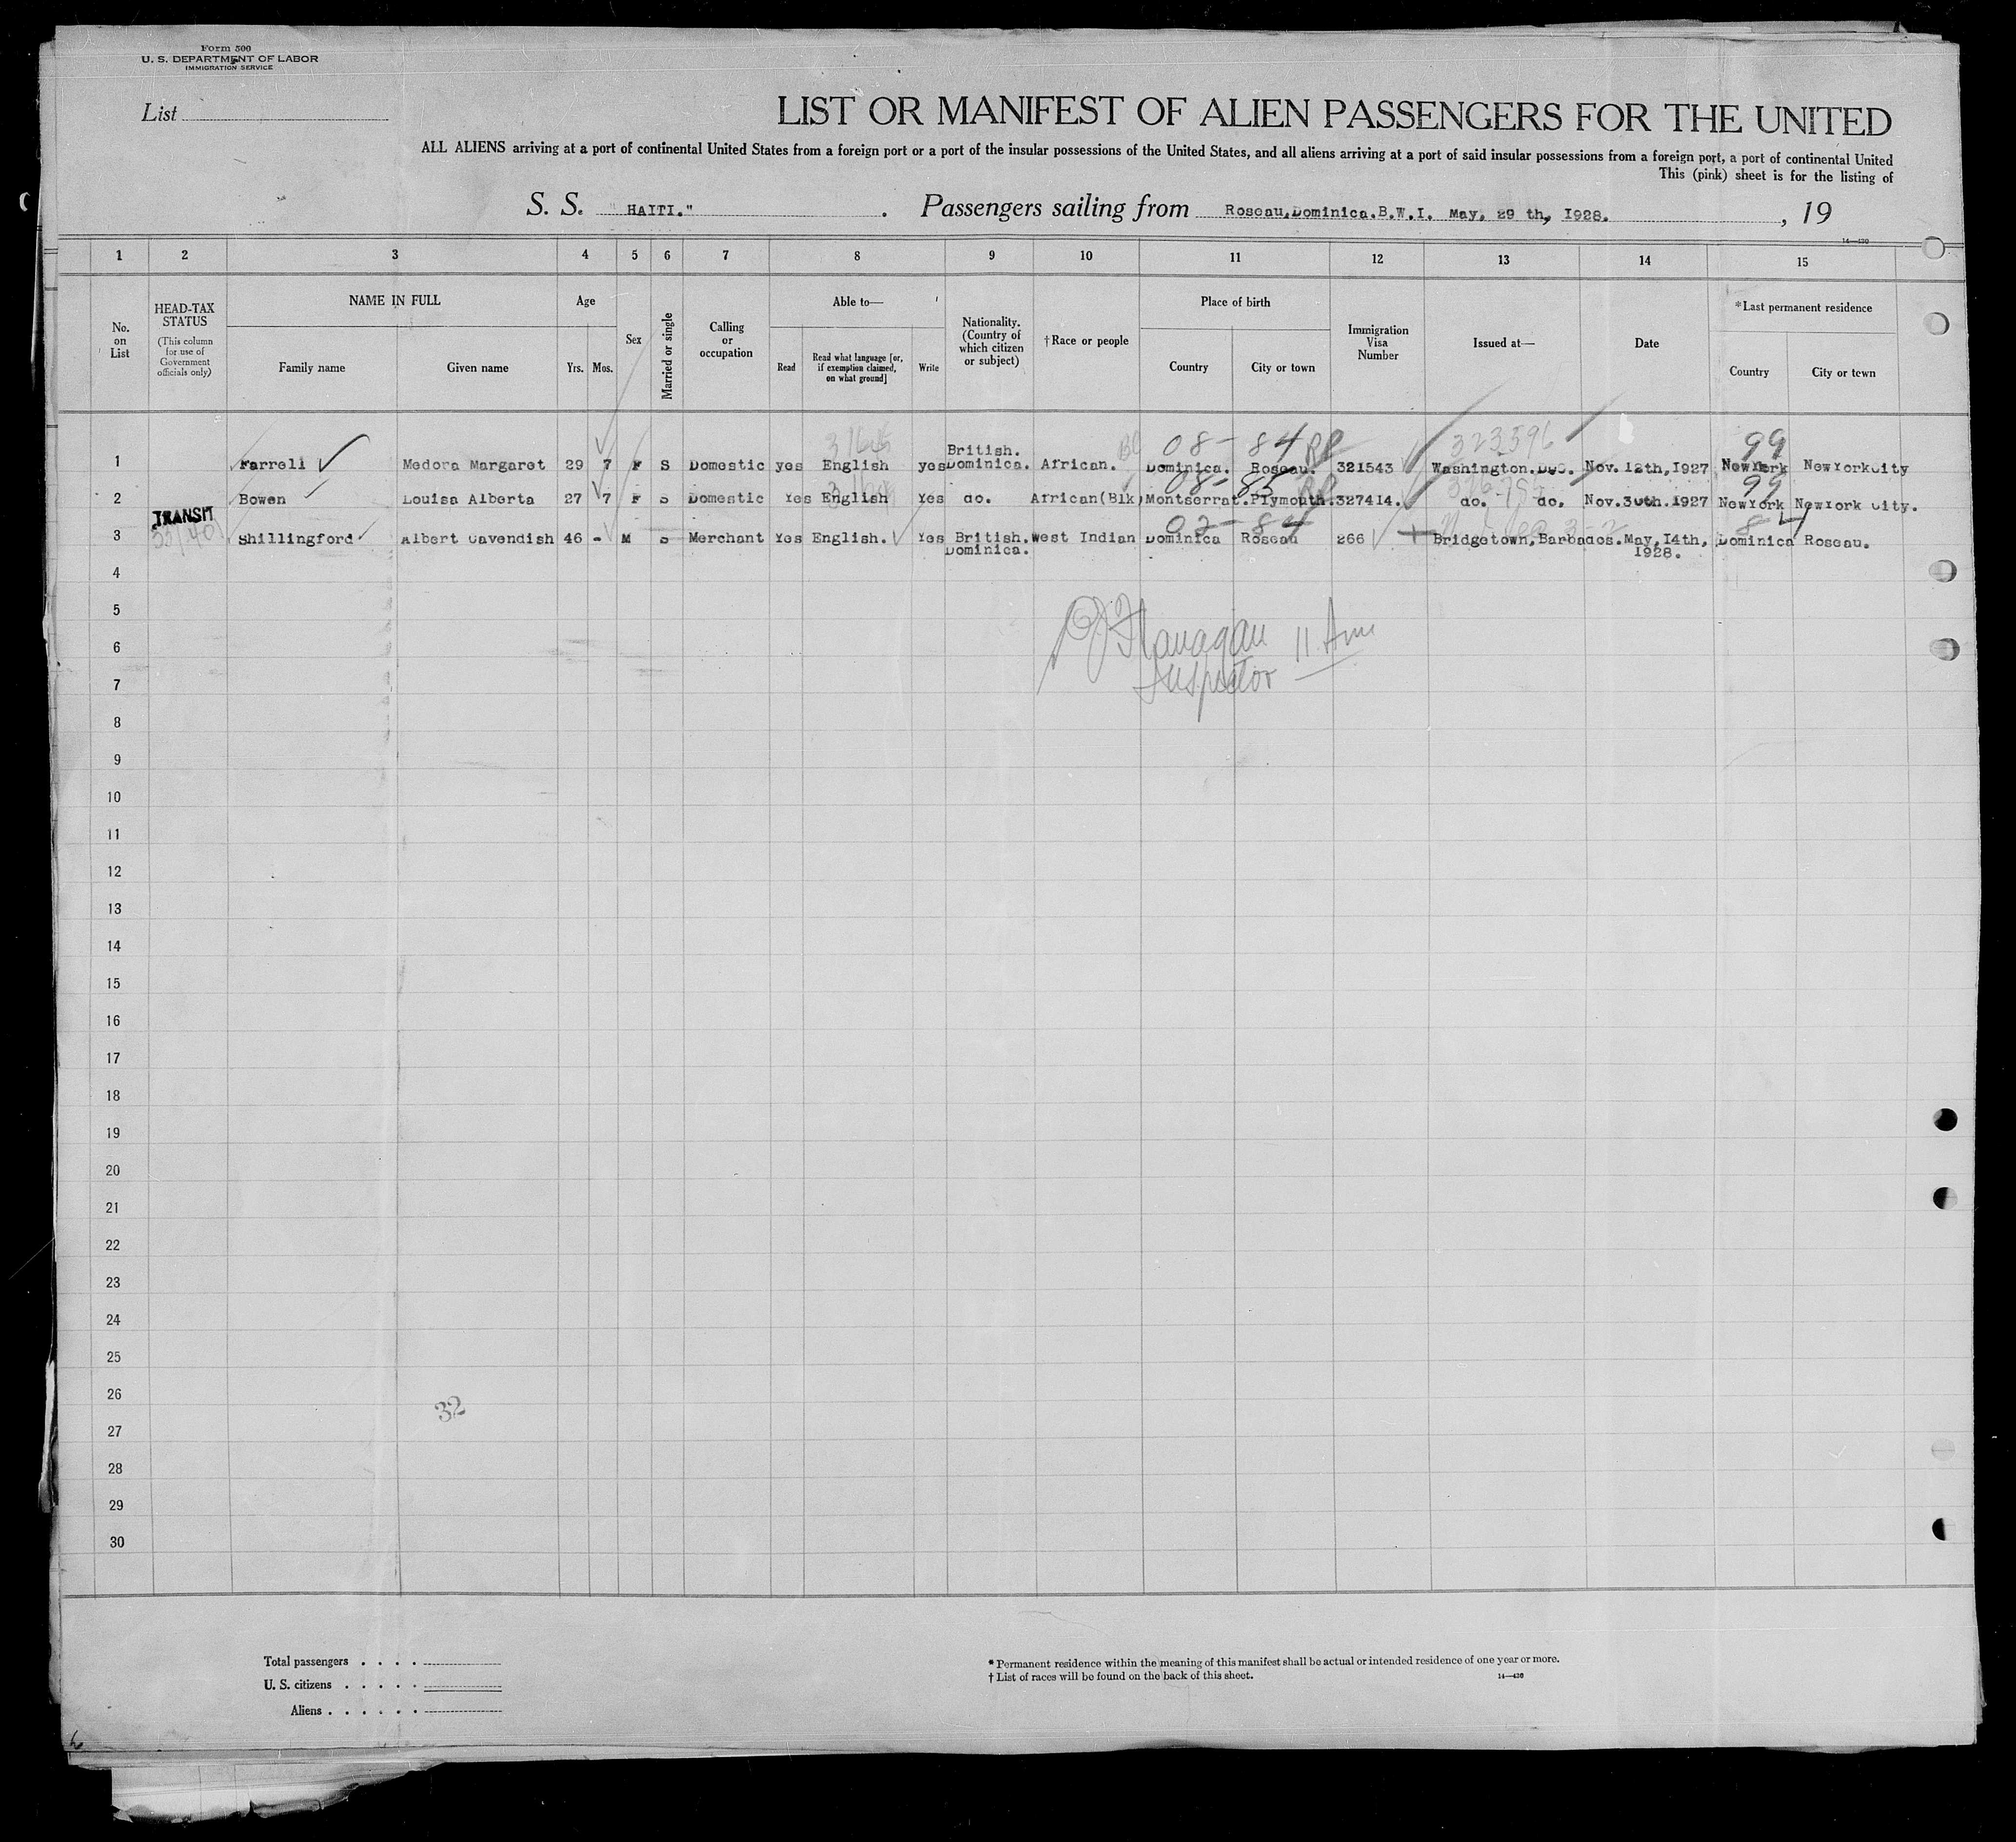 Form 500
U. S. DEPARTMENT OF LABOR
IMMIGRATION SERVICE
List
LIST OR MANIFEST OF ALIEN PASSENGERS FOR THE UNITED
ALL ALIENS arriving at a port of continental United States from a foreign port or a port of the insular possessions of the United States, and all aliens arriving at a port of said insular possessions from a foreign port, a port of continental United
This (pink) sheet is for the listing of
S. S. "HAITI." . Passengers sailing from Roseau,Dominica.B.W.I. May, 29 th, 1928. , 19
14—430
1 2 3 4 5 6 7 8 9 10 11 12 13 14 15
No. on List
HEAD-TAX STATUS
(This column for use of Government officials only)
NAME IN FULL
Family name Given name
Age
Yrs. Mos.
Sex
Married or single
Calling or occupation
Able to—
Read
Read what language [or, if exemption claimed, on what ground]
Write
Nationality. (Country of which citizen or subject)
†Race or people
Place of birth
Country City or town
Immigration Visa Number
Issued at—
Date
*Last permanent residence
Country City or town
08- 84 RP 323596 99
1 Farrell Medora Margaret 29 7 F S Domestic yes English yes British. Dominica. African. Dominica. Roseau. 321543 Washington.D.C. Nov.12th,1927 NewYork NewYorkCity
08- 85 RP 99
2 Bowen Louisa Alberta 27 7 F S Domestic Yes English Yes do. African(Blk) Montserrat.Plymouth. 327414. do. do. Nov.30th.1927 NewYork NewYork City.
TRANSIT 84 84
3 Shillingford Albert Cavendish 46 - M S Merchant Yes English. Yes British. Dominica. West Indian Dominica Roseau 266 Bridgetown,Barbados. May,14th, 1928. Dominica Roseau.
4
5
Flanagan 11 Am
6
Inspector
7
8
9
10
11
12
13
14
15
16
17
18
19
20
21
22
23
24
25
26
32
27
28
29
30
Total passengers . . . .
U. S. citizens . . . . .
Aliens . . . . . .
* Permanent residence within the meaning of this manifest shall be actual or intended residence of one year or more.
† List of races will be found on the back of this sheet. 14—430